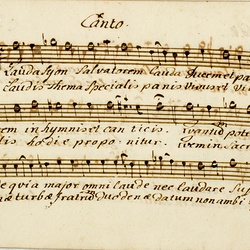 Canto.
Lauda Syon Salvatorem Lauda Ducem et pa
Laudis thema specialis panis vivus et vi
em in hymnis et can ticis.
lis ho di e propo nitur.
de quia major omni laude nec laudare Su
næ turbæ fratrum duodenæ datum non ambi